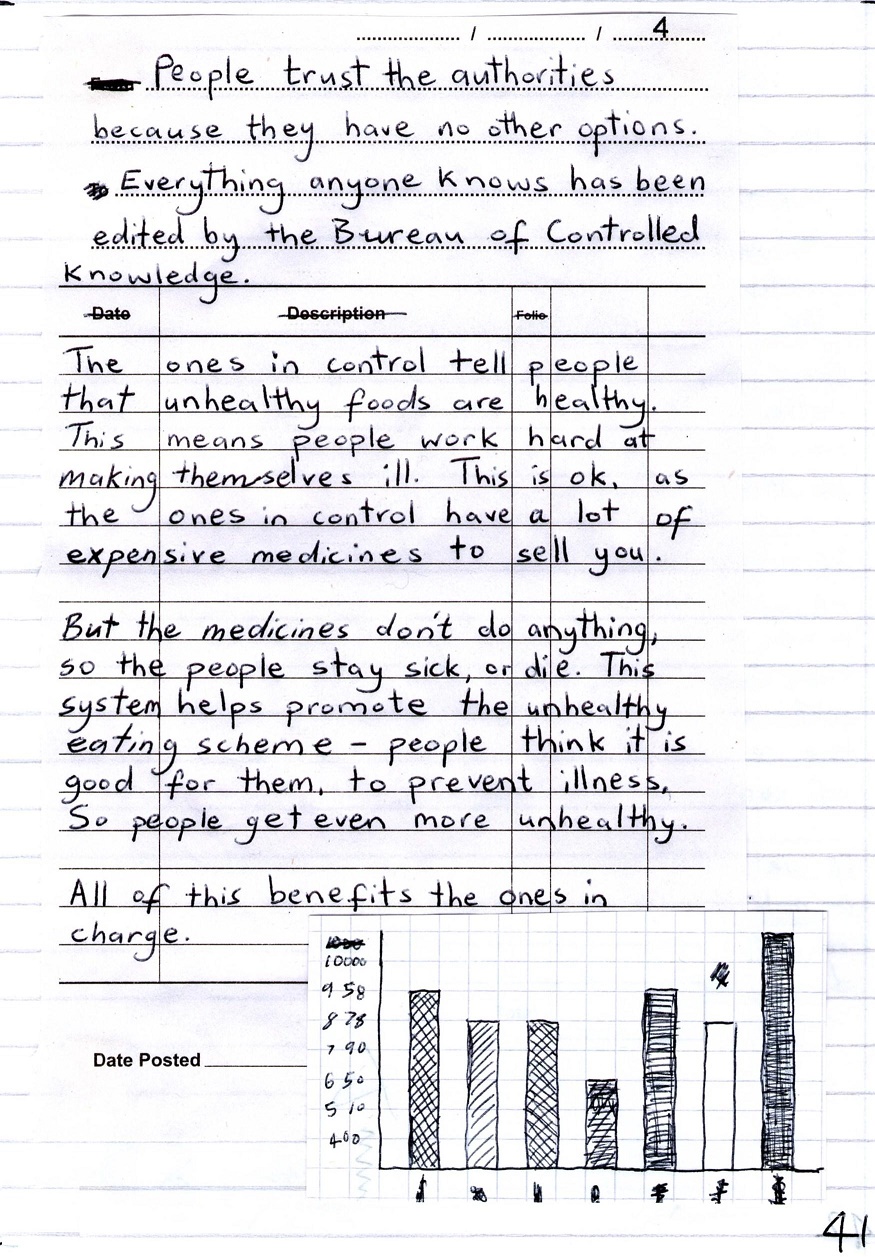 / / 4
People trust the authorities
because they have no other options.
Everything anyone knows has been
edited by the Bureau of Controlled
Knowledge.
Date Description Folio
The ones in control tell people
that unhealthy foods are healthy.
This means people work hard at
making themselves ill. This is ok, as
the ones in control have a lot of
expensive medicines to sell you.
But the medicines don't do anything,
so the people stay sick, or die. This
system helps promote the unhealthy
eating scheme – people think it is
good for them, to prevent illness,
So people get even more unhealthy.
All of this benefits the ones in
charge.
10000
958
878
790
650
510
400
Date Posted
41